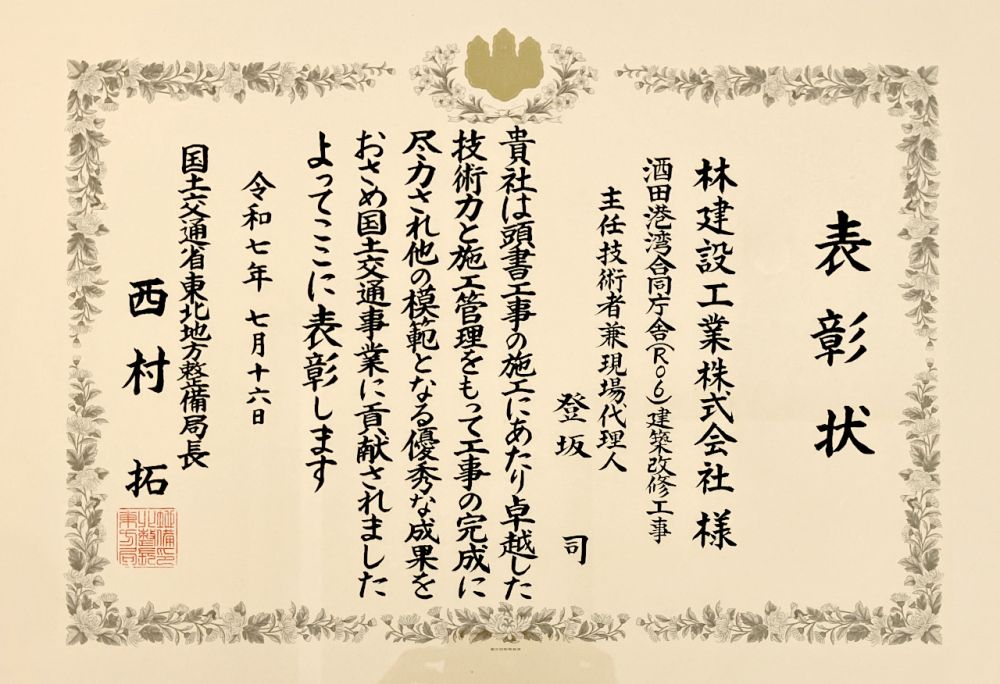 表彰状
林建設工業株式会社 様
酒田港湾合同庁舎(R06)建築改修工事
主任技術者兼現場代理人
登坂 司
貴社は頭書工事の施工にあたり卓越した
技術力と施工管理をもって工事の完成に
尽力され他の模範となる優秀な成果を
おさめ国土交通事業に貢献されました
よってここに表彰します
令和七年 七月十六日
国土交通省東北地方整備局長
西村 拓